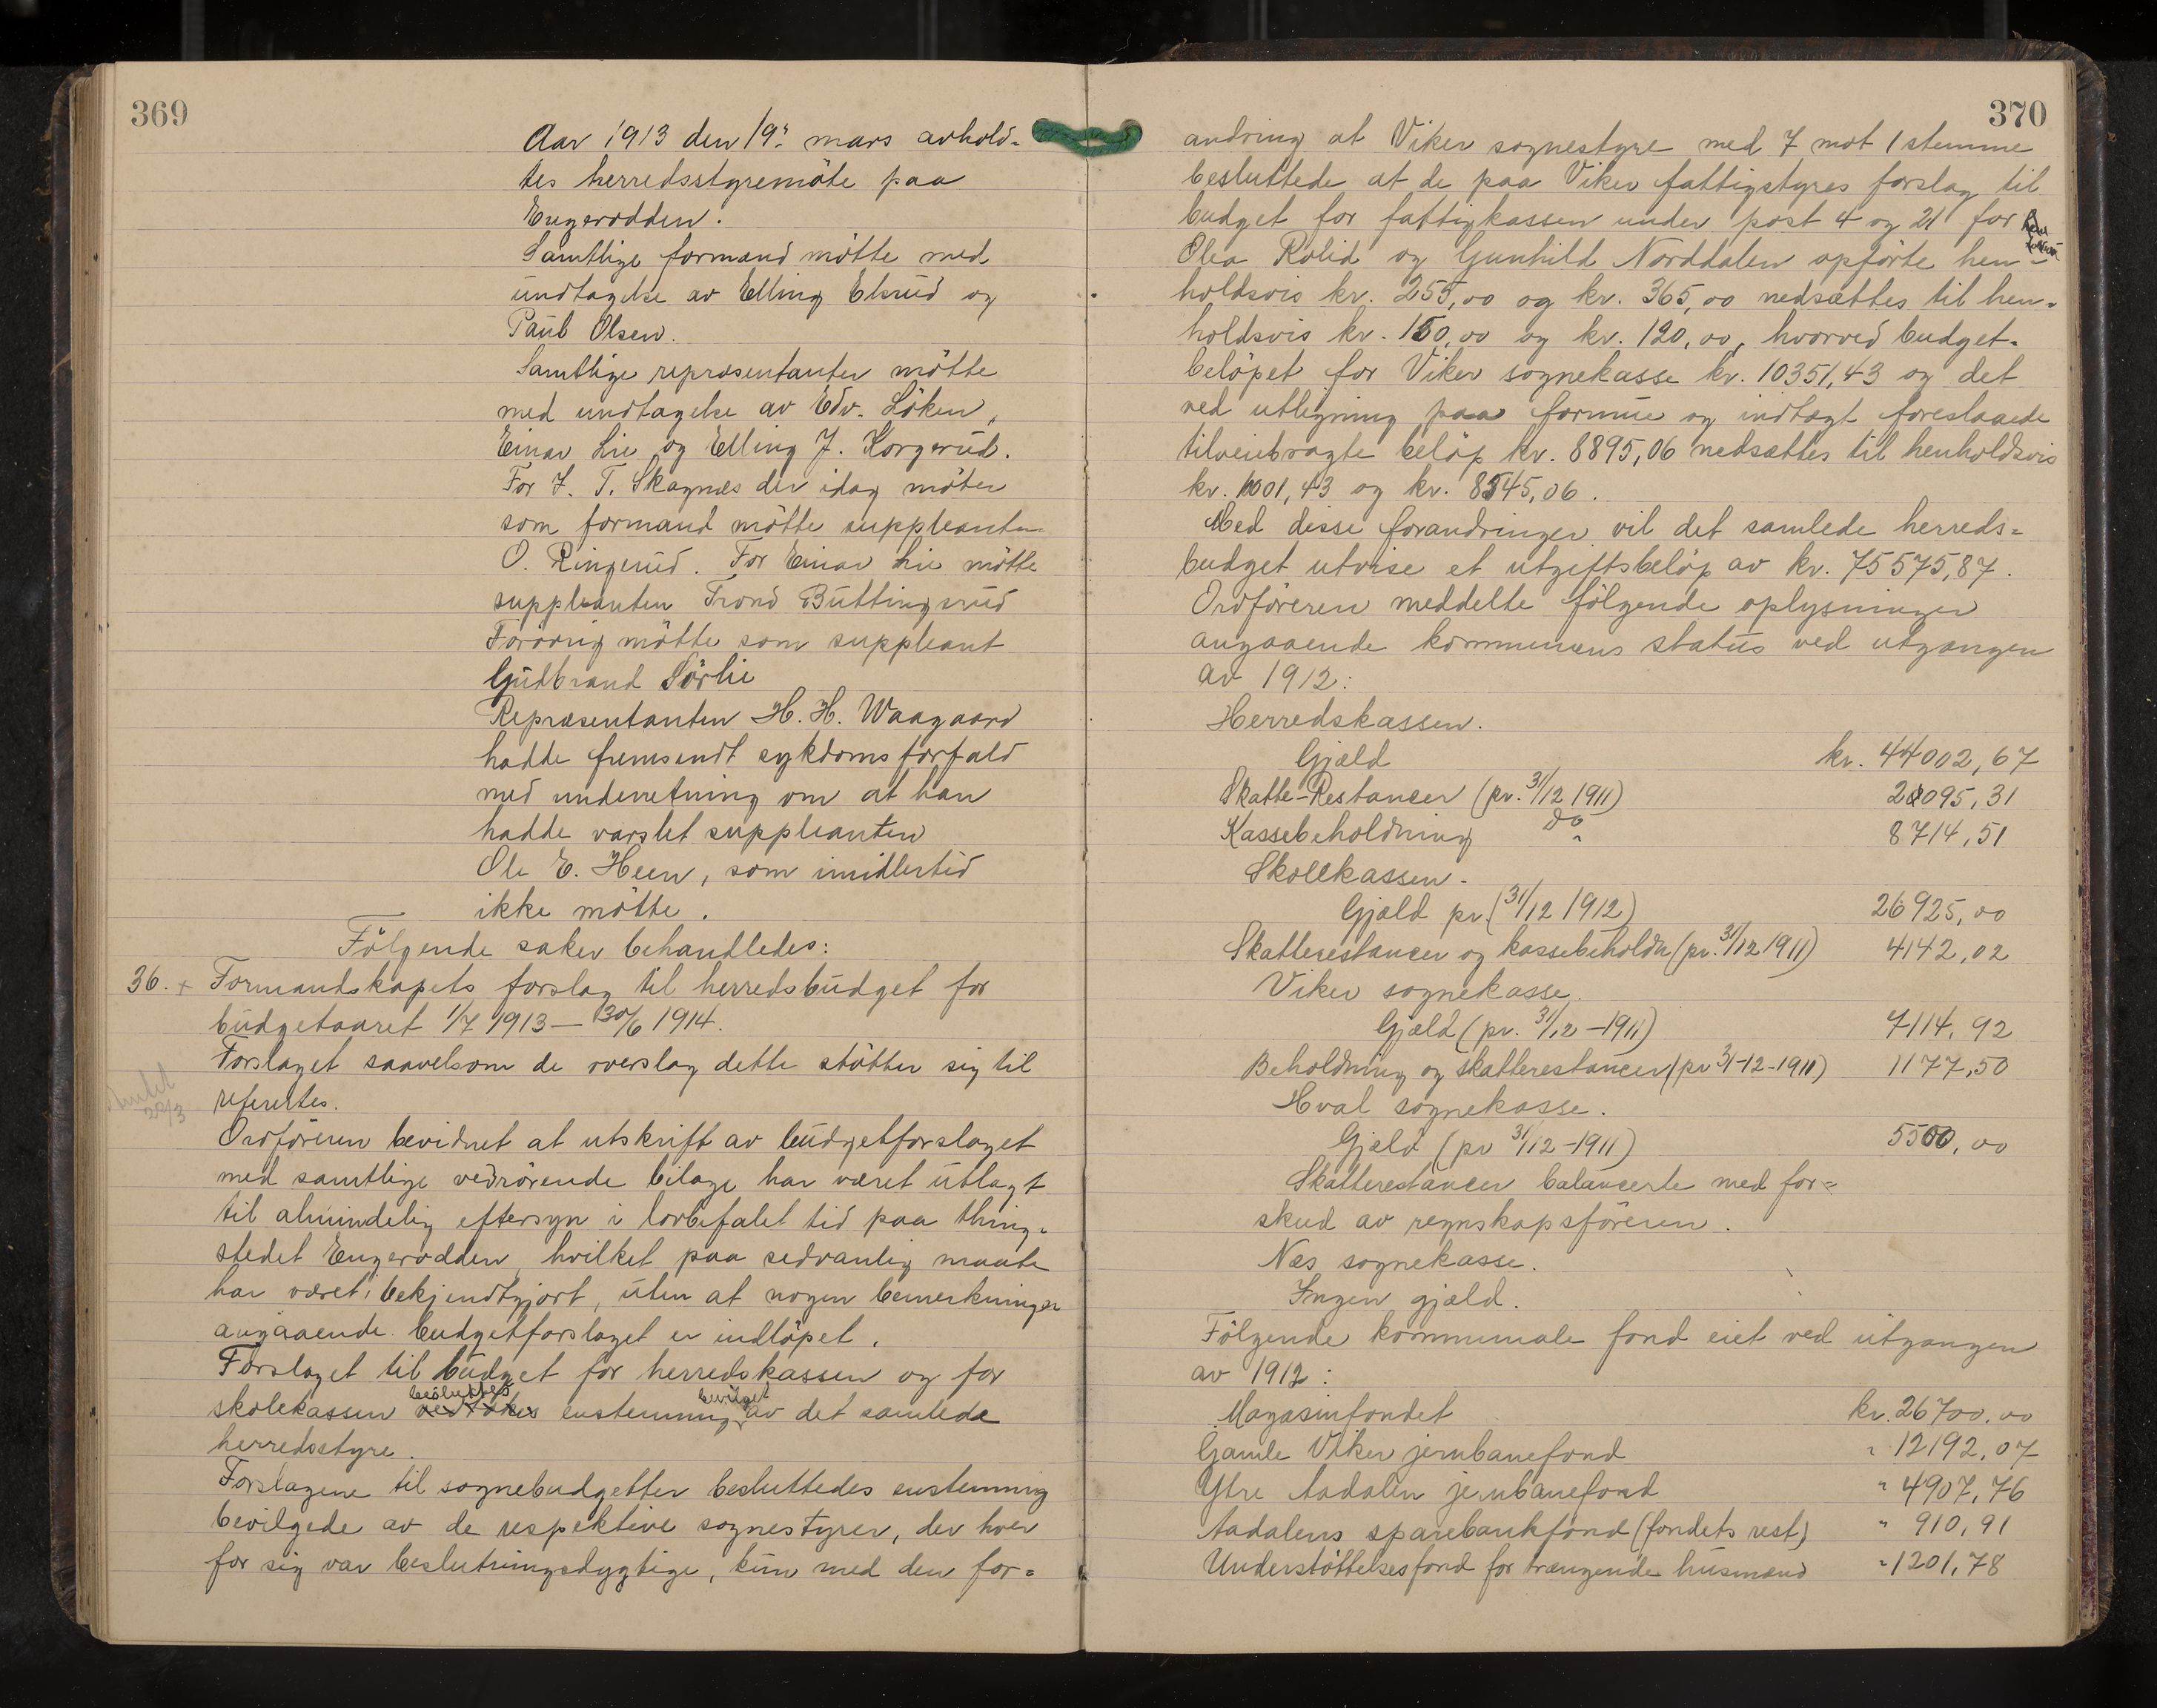 369
Aar 1913 den 19. mars avhold-
tes herredsstyremöte paa
Engerodden.
Samtlige formænd mötte med
undtagelse av Elling Elsrud og
Paul Olsen.
Samtlige repræsentanter mötte
med undtagelse av Edv. Löken,
Einar Lie og Elling J. Korgerud.
For J. T. Skagnæs der idag möter
som formand mötte suppleanten
O. Ringerud. For Einar Lie mötte
suppleanten Trond Buttingsrud
Forövrig mötte som suppleant
Gudbrand Sörlie
Repræsentanten H. H. Waagaard
hadde fremsendt sykdomsforfald
med underretning om at han
hadde varslet suppleanten
Ole E. Heen, som imidlertid
ikke mötte.
Fölgende saker behandledes:
36. + Formandskapets forslag til herredsbudget for
budgetaaret 1/7 1913 — 30/6 1914.
Forslaget saavelsom de overslag dette stötter sig til
refereertes.
22/3
Ordföreren bevidnet at utskrift av budgetforslaget
med samtlige vedrörende bilage har været utlagt
til almindelig eftersyn i lovbefalet tid paa thing-
stedet Engerodden, hvilket paa sedvanlig maate
har været bekjendtgjort, uten at nogen bemerkninger
angaaende budgetforslaget er indlöpet.
Forslaget til budget for herredskassen og for
besluttes bevilget
skolekassen vedtokes enstemmig av det samlede
herredsstyre.
Forslagene til sognebudgetter besluttedes enstemmig
bevilgede av de respektive sognestyrer, der hver
for sig var beslutningsdygtige, kun med den for-
370
andring at Viker sognestyre med 7 mot 1 stemme
besluttede at de paa Viker fattigstyres forslag til
budget for fattigkassen under post 4 og 21 for
Olea Rolid og Gunhild Norddalen opförte hen-
holdsvis kr. 255,00 og kr. 365,00 nedsættes til hen-
holdsvis kr. 150,00 og kr. 120,00, hvorved budget-
belöpet for Viker sognekasse kr. 10351,43 og det
ved utligning paa formue og indtægt foreslaaede
tilveiebragte belöp kr. 8895,06 nedsættes til henholdsvis
kr. 10001,43 og kr. 8545,06.
Med disse forandringer vil det samlede herreds-
budget utvise et utgiftsbelöp av kr. 75575,87.
Ordföreren meddelte fölgende oplysninger
angaaende kommunens status ved utgangen
av 1912:
Herredskassen.
Gjæld kr. 44002,67
Skatte-Restancer (pr. 31/12 1911) 095,31
Kassebeholdning do " 8714,51
Skolekassen.
Gjæld pr. (31/12 1912) 26925,00
Skatterestancer og kassebeholdn (pr. 31/12 1911) 4142,02
Viker sognekasse.
Gjæld (pr. 31/12 - 1911) 7114,92
Beholdning og skatterestancer (pr 31-12-1911) 1177,50
Hval sognekasse.
Gjæld (pr 31/12 - 1911) 5500,00
Skatterestancer balancerte med for-
skud av regnskapsföreren.
Næs sognekasse.
Ingen gjæld.
Fölgende kommunale fond eiet ved utgangen
av 1912:
Magasinfondet kr. 26700,00
Gamle Viker jernbanefond " 12192,07
Ytre Aadalen jernbanefond " 4907,76
Aadalens sparebankfond (fondets rest) " 910,91
Understöttelsesfond for trængende husmænd " 1201,78